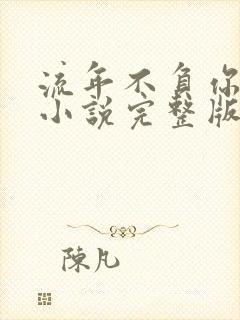 流年不負你
小說完整版
陳凡